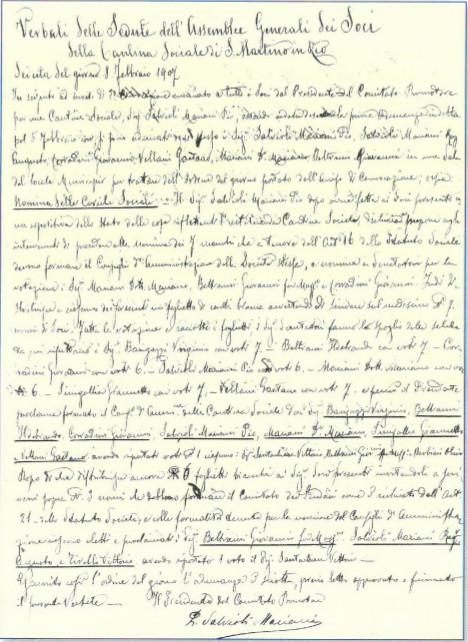 Verbali delle Sedute dell'Assemblee Generali dei Soci
della Cantina Sociale di S. Martino in Rio
Seduta del giorno 8 Febbraio 1907
In seguito ad invito di convocazione a tutti i Soci dal Presidente del Comitato Promotore
per una Cantina Sociale, Sig. Salvioli Mariani Pio, andata deserta la prima indetta
pel 5 Febbraio si sono adunati i Sig.i Salvioli Mariani Pio, Salvioli Mariani
Augusto, Corradini Giovanni, Vellani Gaetano, Mariani Dr. Mariano, Beltrami Giovanni in una Sala
del locale Municipio per trattare dell'ordine del giorno portato dall'avviso di Convocazione; ossia
Nomina delle Cariche Sociali — Il Sig. Salvioli Mariani Pio dopo aver fatta ai Soci presenti
un'esposizione dello stato delle cose riflettenti l'istituenda Cantina Sociale, dichiara propone agli
intervenuti di procedere alla nomina dei 7 membri che a tenore dell'art. 16 dello Statuto Sociale
devono formare il Consiglio d'Amministrazione della Società stessa, e nomina a Scrutatori per la
votazione i Sig.i Mariani Dott. Mariano, Beltrami Giovanni fu Massimo e Corradini Giovanni. Indi
distribuisce a ciascuno dei presenti un foglietto di carta bianca avvertendo di scrivere sul medesimo N° 7
nomi di Soci. Fatta la votazione e raccolti i foglietti i Sig.i Scrutatori fanno lo spoglio delle schede
da cui risultano i Sig.i Bangazzi Virginio con voti 7 — Beltrami Ildebrando con voti 7 — Cor-
radini Giovanni con voti 6 — Salvioli Mariani Pio con voti 6 — Mariani Dott. Mariano con voti
6 — Giannetto con voti 7, — Vellani Gaetano con voti 7, e perciò il Presidente
proclama formato il Consig. d'Ammin. della Cantina Sociale dai Sig.i Bangazzi Virginio, Beltrami
Ildebrando, Corradini Giovanni, Salvioli Mariani Pio, Mariani Dr. Mariano, Giannetto
e Vellani Gaetano avendo riportato voti 1 ciascuno i Sig.i Vittorio, Beltrami Giov. fu Mass.
Dopo di che distribuisce ancora N° 6 foglietti bianchi ai Sig.i Soci presenti invitandoli a scri-
vervi sopra N° 3 nomi che debbono formare il Comitato dei Sindaci come è richiesto dall'Art.
21 dello Statuto Sociale, e colle formalità tenute per la nomina del Consiglio d'Amministra-
zione vengono eletti e proclamati i Sig.i Beltrami Giovanni fu Mass.o Salvioli Mariani Rag.
Augusto, e Tirelli Vittorio avendo riportato 1 voto il Sig. Vittorio —
Esaurito così l'ordine del giorno l'adunanza è sciolta, previa letto approvato e firmato
il presente Verbale — Il Presidente del Comitato Promotore
P. Salvioli Mariani